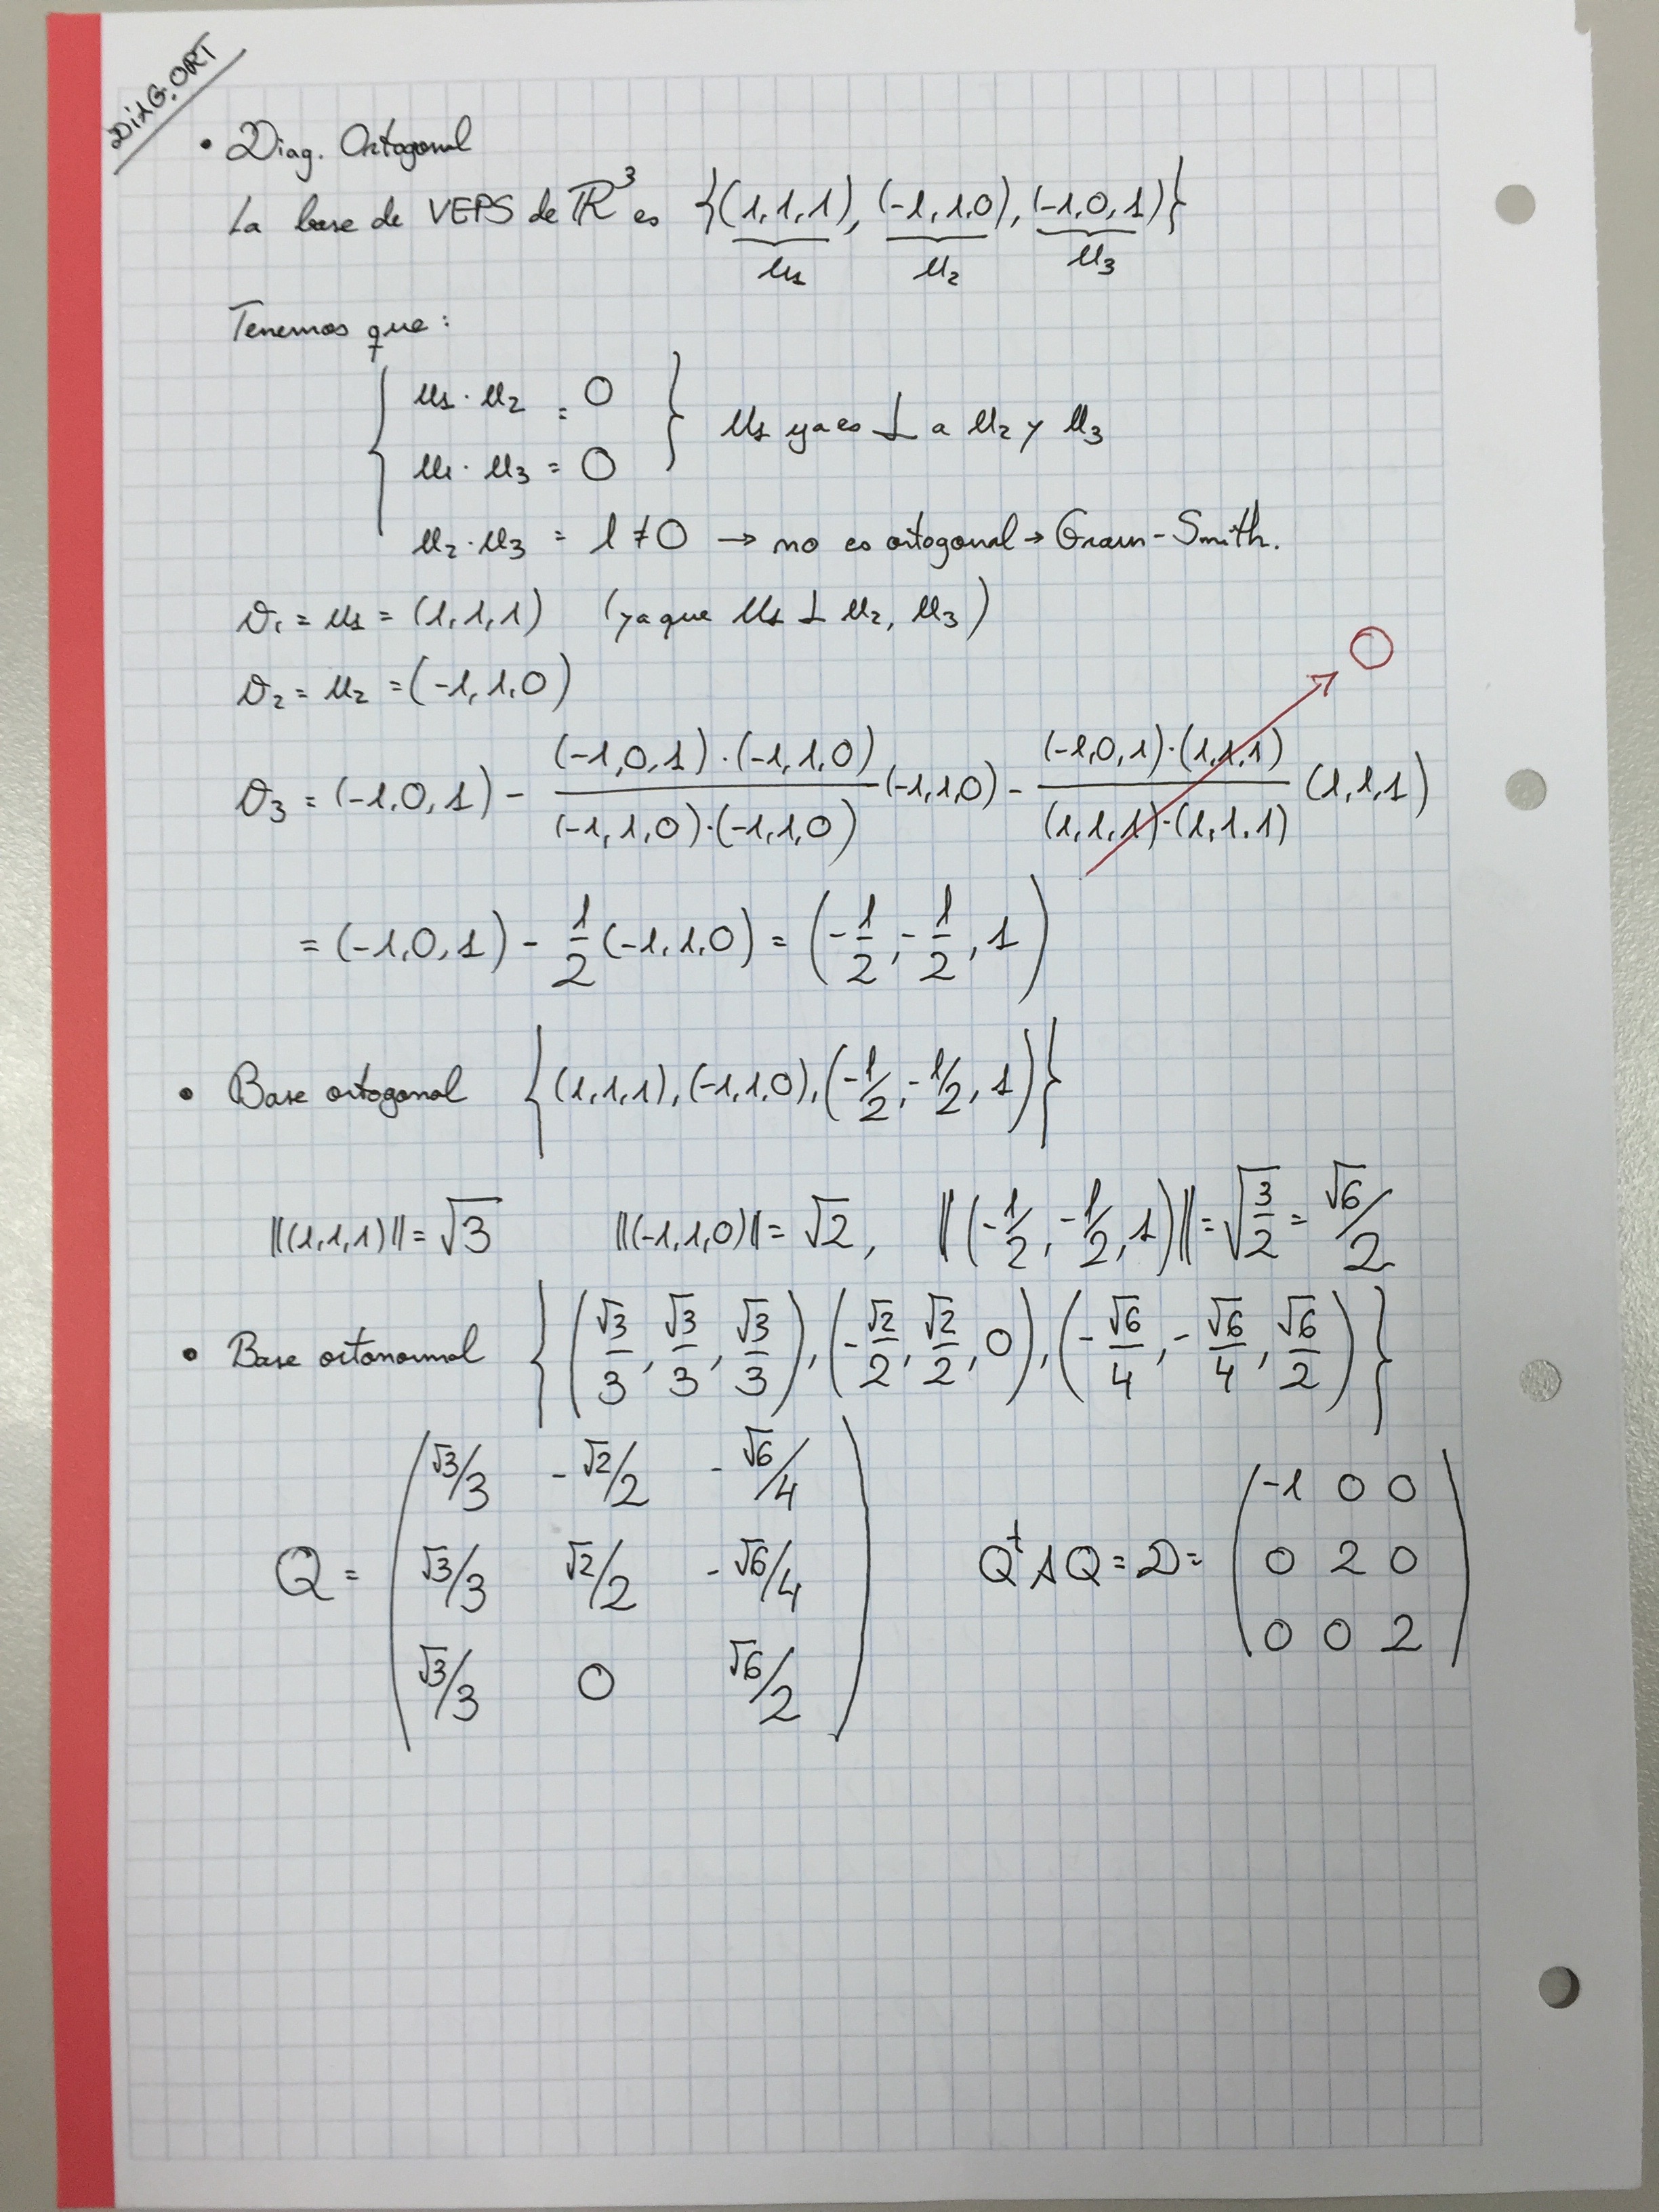 DIAG.ORT
• Diag. Ortogonal
La base de VEPS de ℝ³ es {(1,1,1), (-1,1,0), (-1,0,1)}
u₁ u₂ u₃
Tenemos que:
u₁·u₂ = 0
u₁·u₃ = 0 } u₁ ya es ⊥ a u₂ y u₃
u₂·u₃ = 1 ≠ 0 → no es ortogonal → Gram-Smith.
v₁ = u₁ = (1,1,1) (ya que u₁ ⊥ u₂, u₃)
v₂ = u₂ = (-1,1,0)
0
v₃ = (-1,0,1) - ((-1,0,1)·(-1,1,0))/((-1,1,0)·(-1,1,0)) (-1,1,0) - ((-1,0,1)·(1,1,1))/((1,1,1)·(1,1,1)) (1,1,1)
= (-1,0,1) - 1/2 (-1,1,0) = (-1/2, -1/2, 1)
• Base ortogonal {(1,1,1), (-1,1,0), (-1/2, -1/2, 1)}
||(1,1,1)|| = √3 ||(-1,1,0)|| = √2, ||(-1/2, -1/2, 1)|| = √(3/2) = √6/2
• Base ortonormal {(√3/3, √3/3, √3/3), (-√2/2, √2/2, 0), (-√6/4, -√6/4, √6/2)}
Q = ( √3/3 -√2/2 -√6/4
√3/3 √2/2 -√6/4
√3/3 0 √6/2 )
QᵗAQ = D = ( -1 0 0
0 2 0
0 0 2 )